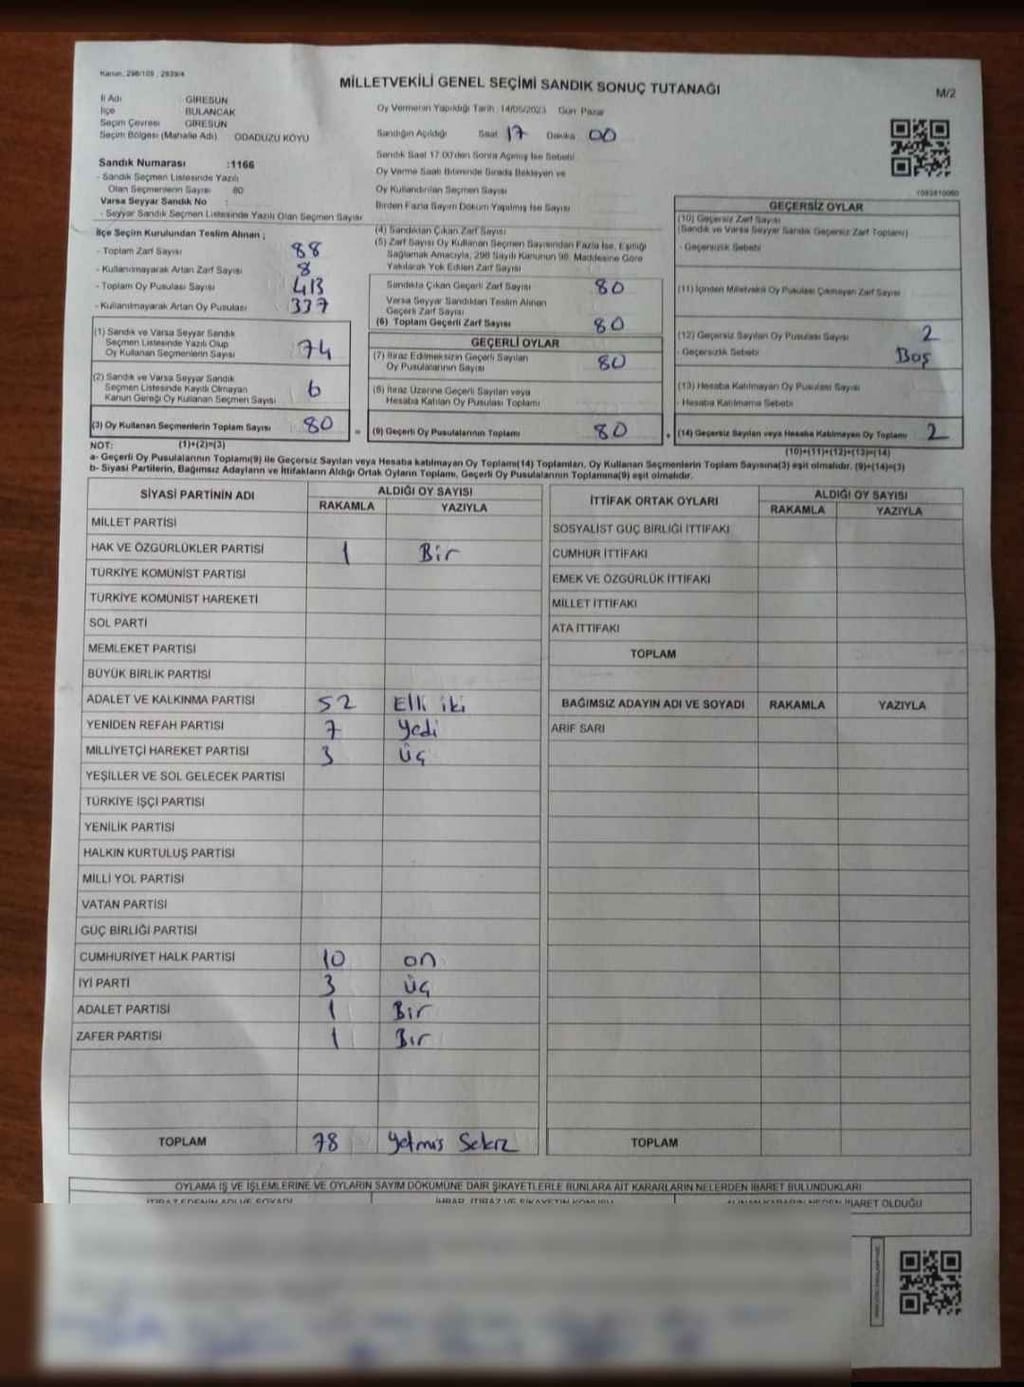 Kanun: 298/105 , 2839/4
MİLLETVEKİLİ GENEL SEÇİMİ SANDIK SONUÇ TUTANAĞI
M/2
İl Adı GİRESUN
İlçe BULANCAK
Seçim Çevresi GİRESUN
Seçim Bölgesi (Mahalle Adı) ODADÜZÜ KÖYÜ
Oy Vermenin Yapıldığı Tarih 14/05/2023 Gün Pazar
Sandığın Açıldığı Saat 17 Dakika 00
Sandık Saat 17:00'den Sonra Açılmış İse Sebebi
Oy Verme Saati Bitiminde Sırada Bekleyen ve
Oy Kullandırılan Seçmen Sayısı
Birden Fazla Sayım Döküm Yapılmış İse Sayısı
Sandık Numarası :1166
- Sandık Seçmen Listesinde Yazılı
Olan Seçmenlerin Sayısı 80
Varsa Seyyar Sandık No :
- Seyyar Sandık Seçmen Listesinde Yazılı Olan Seçmen Sayısı
İlçe Seçim Kurulundan Teslim Alınan ;
- Toplam Zarf Sayısı 88
- Kullanılmayarak Artan Zarf Sayısı 8
- Toplam Oy Pusulası Sayısı 413
- Kullanılmayarak Artan Oy Pusulası 337
(1) Sandık ve Varsa Seyyar Sandık
Seçmen Listesinde Yazılı Olup
Oy Kullanan Seçmenlerin Sayısı 74
(2) Sandık ve Varsa Seyyar Sandık
Seçmen Listesinde Kayıtlı Olmayan
Kanun Gereği Oy Kullanan Seçmen Sayısı 6
(3) Oy Kullanan Seçmenlerin Toplam Sayısı 80 =
(4) Sandıktan Çıkan Zarf Sayısı
(5) Zarf Sayısı Oy Kullanan Seçmen Sayısından Fazla İse, Eşitliği
Sağlamak Amacıyla, 298 Sayılı Kanunun 98. Maddesine Göre
Yakılarak Yok Edilen Zarf Sayısı
Sandıkta Çıkan Geçerli Zarf Sayısı 80
Varsa Seyyar Sandıktan Teslim Alınan
Geçerli Zarf Sayısı
(6) Toplam Geçerli Zarf Sayısı 80
GEÇERLİ OYLAR
(7) İtiraz Edilmeksizin Geçerli Sayılan
Oy Pusulalarının Sayısı 80
(8) İtiraz Üzerine Geçerli Sayılan veya
Hesaba Katılan Oy Pusulası Toplamı
(9) Geçerli Oy Pusulalarının Toplamı 80 +
GEÇERSİZ OYLAR
(10) Geçersiz Zarf Sayısı
(Sandık ve Varsa Seyyar Sandık Geçersiz Zarf Toplamı)
- Geçersizlik Sebebi
(11) İçinden Milletvekili Oy Pusulası Çıkmayan Zarf Sayısı
(12) Geçersiz Sayılan Oy Pusulası Sayısı 2
- Geçersizlik Sebebi Boş
(13) Hesaba Katılmayan Oy Pusulası Sayısı
- Hesaba Katılmama Sebebi
(14) Geçersiz Sayılan veya Hesaba Katılmayan Oy Toplamı 2
NOT: (1)+(2)=(3) (10)+(11)+(12)+(13)=(14)
a- Geçerli Oy Pusulaları Toplamı(9) ile Geçersiz Sayılan veya Hesaba katılmayan Oy Toplamı(14) Toplamları, Oy Kullanan Seçmenlerin Toplam Sayısına(3) eşit olmalıdır. (9)+(14)=(3)
b- Siyasi Partilerin, Bağımsız Adayların ve İttifakların Aldığı Ortak Oyların Toplamı, Geçerli Oy Pusulalarının Toplamına(9) eşit olmalıdır.
SİYASİ PARTİNİN ADI ALDIĞI OY SAYISI
RAKAMLA YAZIYLA
MİLLET PARTİSİ
HAK VE ÖZGÜRLÜKLER PARTİSİ 1 Bir
TÜRKİYE KOMÜNİST PARTİSİ
TÜRKİYE KOMÜNİST HAREKETİ
SOL PARTİ
MEMLEKET PARTİSİ
BÜYÜK BİRLİK PARTİSİ
ADALET VE KALKINMA PARTİSİ 52 Elli iki
YENİDEN REFAH PARTİSİ 7 Yedi
MİLLİYETÇİ HAREKET PARTİSİ 3 Üç
YEŞİLLER VE SOL GELECEK PARTİSİ
TÜRKİYE İŞÇİ PARTİSİ
YENİLİK PARTİSİ
HALKIN KURTULUŞ PARTİSİ
MİLLİ YOL PARTİSİ
VATAN PARTİSİ
GÜÇ BİRLİĞİ PARTİSİ
CUMHURİYET HALK PARTİSİ 10 on
İYİ PARTİ 3 üç
ADALET PARTİSİ 1 Bir
ZAFER PARTİSİ 1 Bir
TOPLAM 78 Yetmiş Sekiz
İTTİFAK ORTAK OYLARI ALDIĞI OY SAYISI
RAKAMLA YAZIYLA
SOSYALİST GÜÇ BİRLİĞİ İTTİFAKI
CUMHUR İTTİFAKI
EMEK VE ÖZGÜRLÜK İTTİFAKI
MİLLET İTTİFAKI
ATA İTTİFAKI
TOPLAM
BAĞIMSIZ ADAYIN ADI VE SOYADI RAKAMLA YAZIYLA
ARİF SARI
TOPLAM
OYLAMA İŞ VE İŞLEMLERİNE VE OYLARIN SAYIM DÖKÜMÜNE DAİR ŞİKAYETLERLE BUNLARA AİT KARARLARIN NELERDEN İBARET BULUNDUKLARI
İTİRAZ EDENİN ADI VE SOYADI
İHBAR, İTİRAZ VE ŞİKAYETİN KONUSU
İBARET OLDUĞU